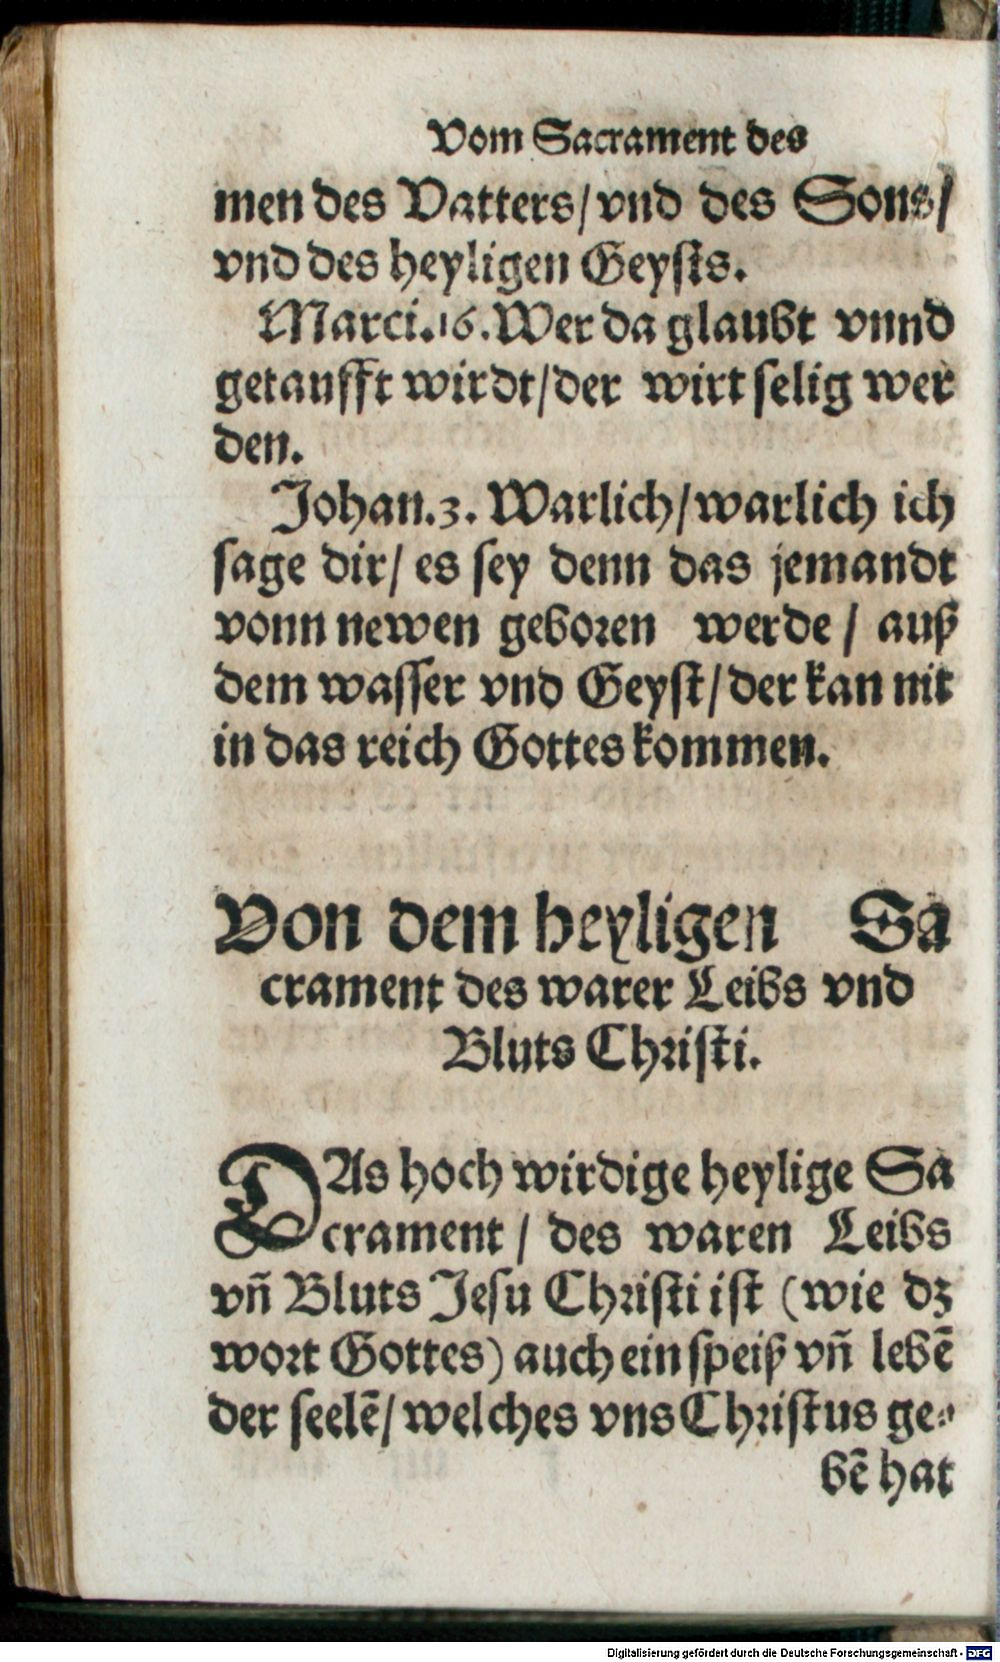 Vom Sacrament des
men des Vatters/ vnd des Sons/
vnd des heyligen Geysts.
Marci. 16. Wer da glaubt vnnd
getaufft wirdt/ der wirt selig wer
den.
Johan. 3. Warlich/ warlich ich
sage dir/ es sey denn das jemandt
vonn newen geboren werde/ auß
dem wasser vnd Geyst/ der kan nit
in das reich Gottes kommen.
Von dem heyligen Sa
crament des warer Leibs vnd
Bluts Christi.
DAs hoch wirdige heylige Sa
crament/ des waren Leibs
vñ Bluts Jesu Christi ist (wie dz
wort Gottes) auch ein speiß vñ lebẽ
der seelẽ/ welches vns Christus ge⸗
bẽ hat
Digitalisierung gefördert durch die Deutsche Forschungsgemeinschaft - DFG